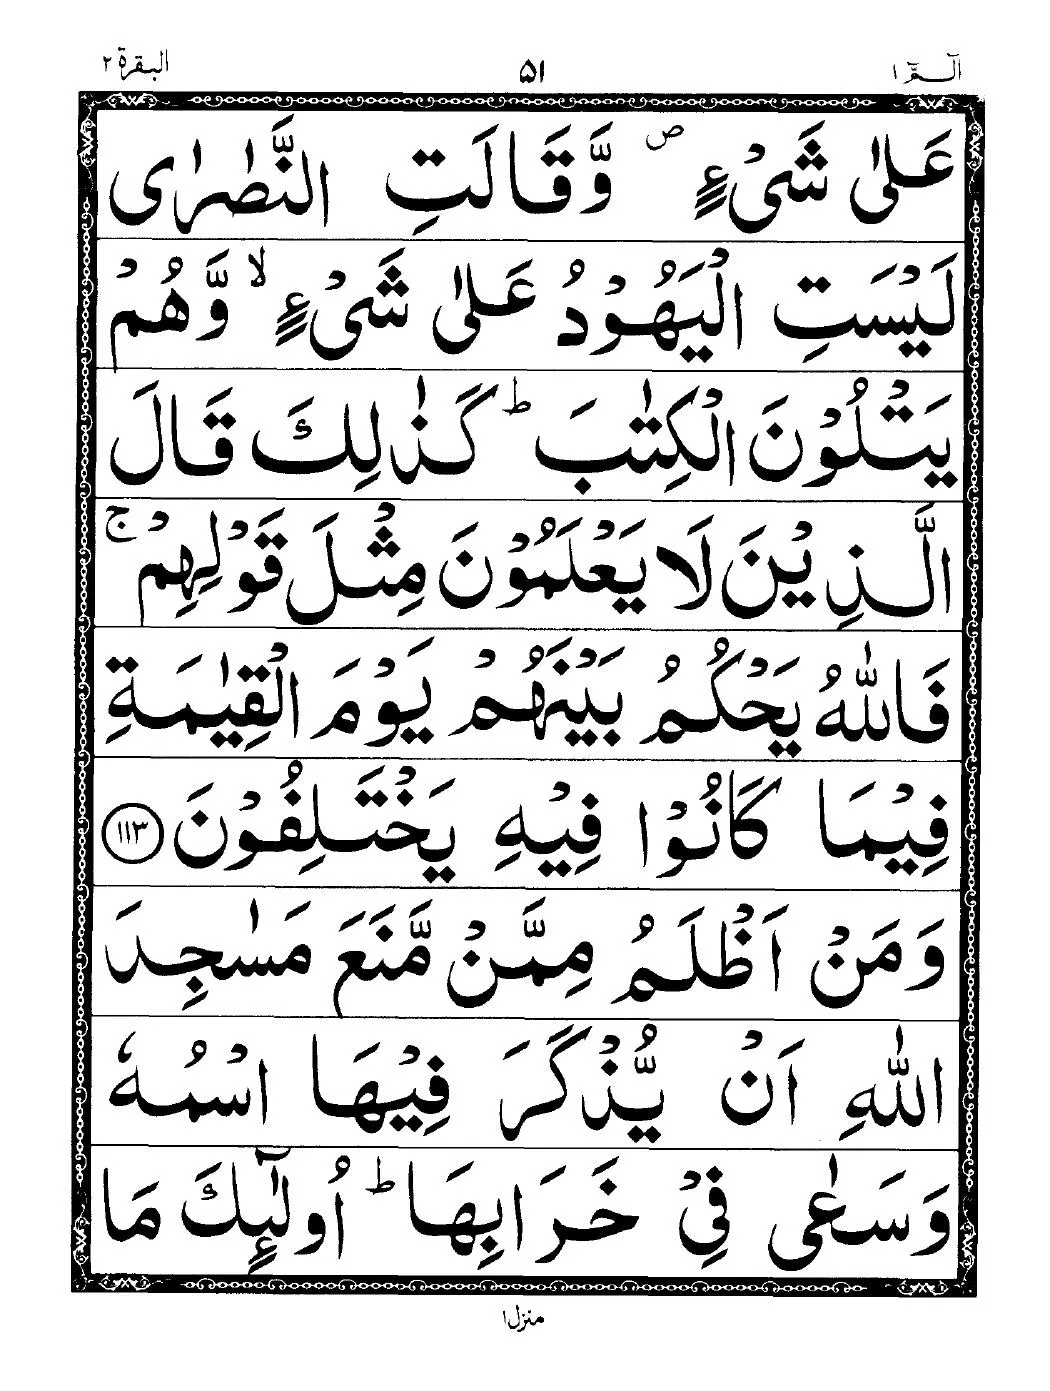 الٓمّٓ ۱ ۵۱ البقرة ۲
عَلٰى شَیْءٍ ۪ وَّقَالَتِ النَّصٰرٰى
لَیْسَتِ الْیَهُوْدُ عَلٰى شَیْءٍ ۙ وَّهُمْ
یَتْلُوْنَ الْكِتٰبَ ؕ كَذٰلِكَ قَالَ
الَّذِیْنَ لَا یَعْلَمُوْنَ مِثْلَ قَوْلِهِمْ ۚ
فَاللّٰهُ یَحْكُمُ بَیْنَهُمْ یَوْمَ الْقِیٰمَةِ
فِیْمَا كَانُوْا فِیْهِ یَخْتَلِفُوْنَ ۝۱۱۳
وَمَنْ اَظْلَمُ مِمَّنْ مَّنَعَ مَسٰجِدَ
اللّٰهِ اَنْ یُّذْكَرَ فِیْهَا اسْمُهٗ
وَسَعٰى فِیْ خَرَابِهَا ؕ اُولٰٓىِٕكَ مَا
منزل ۱